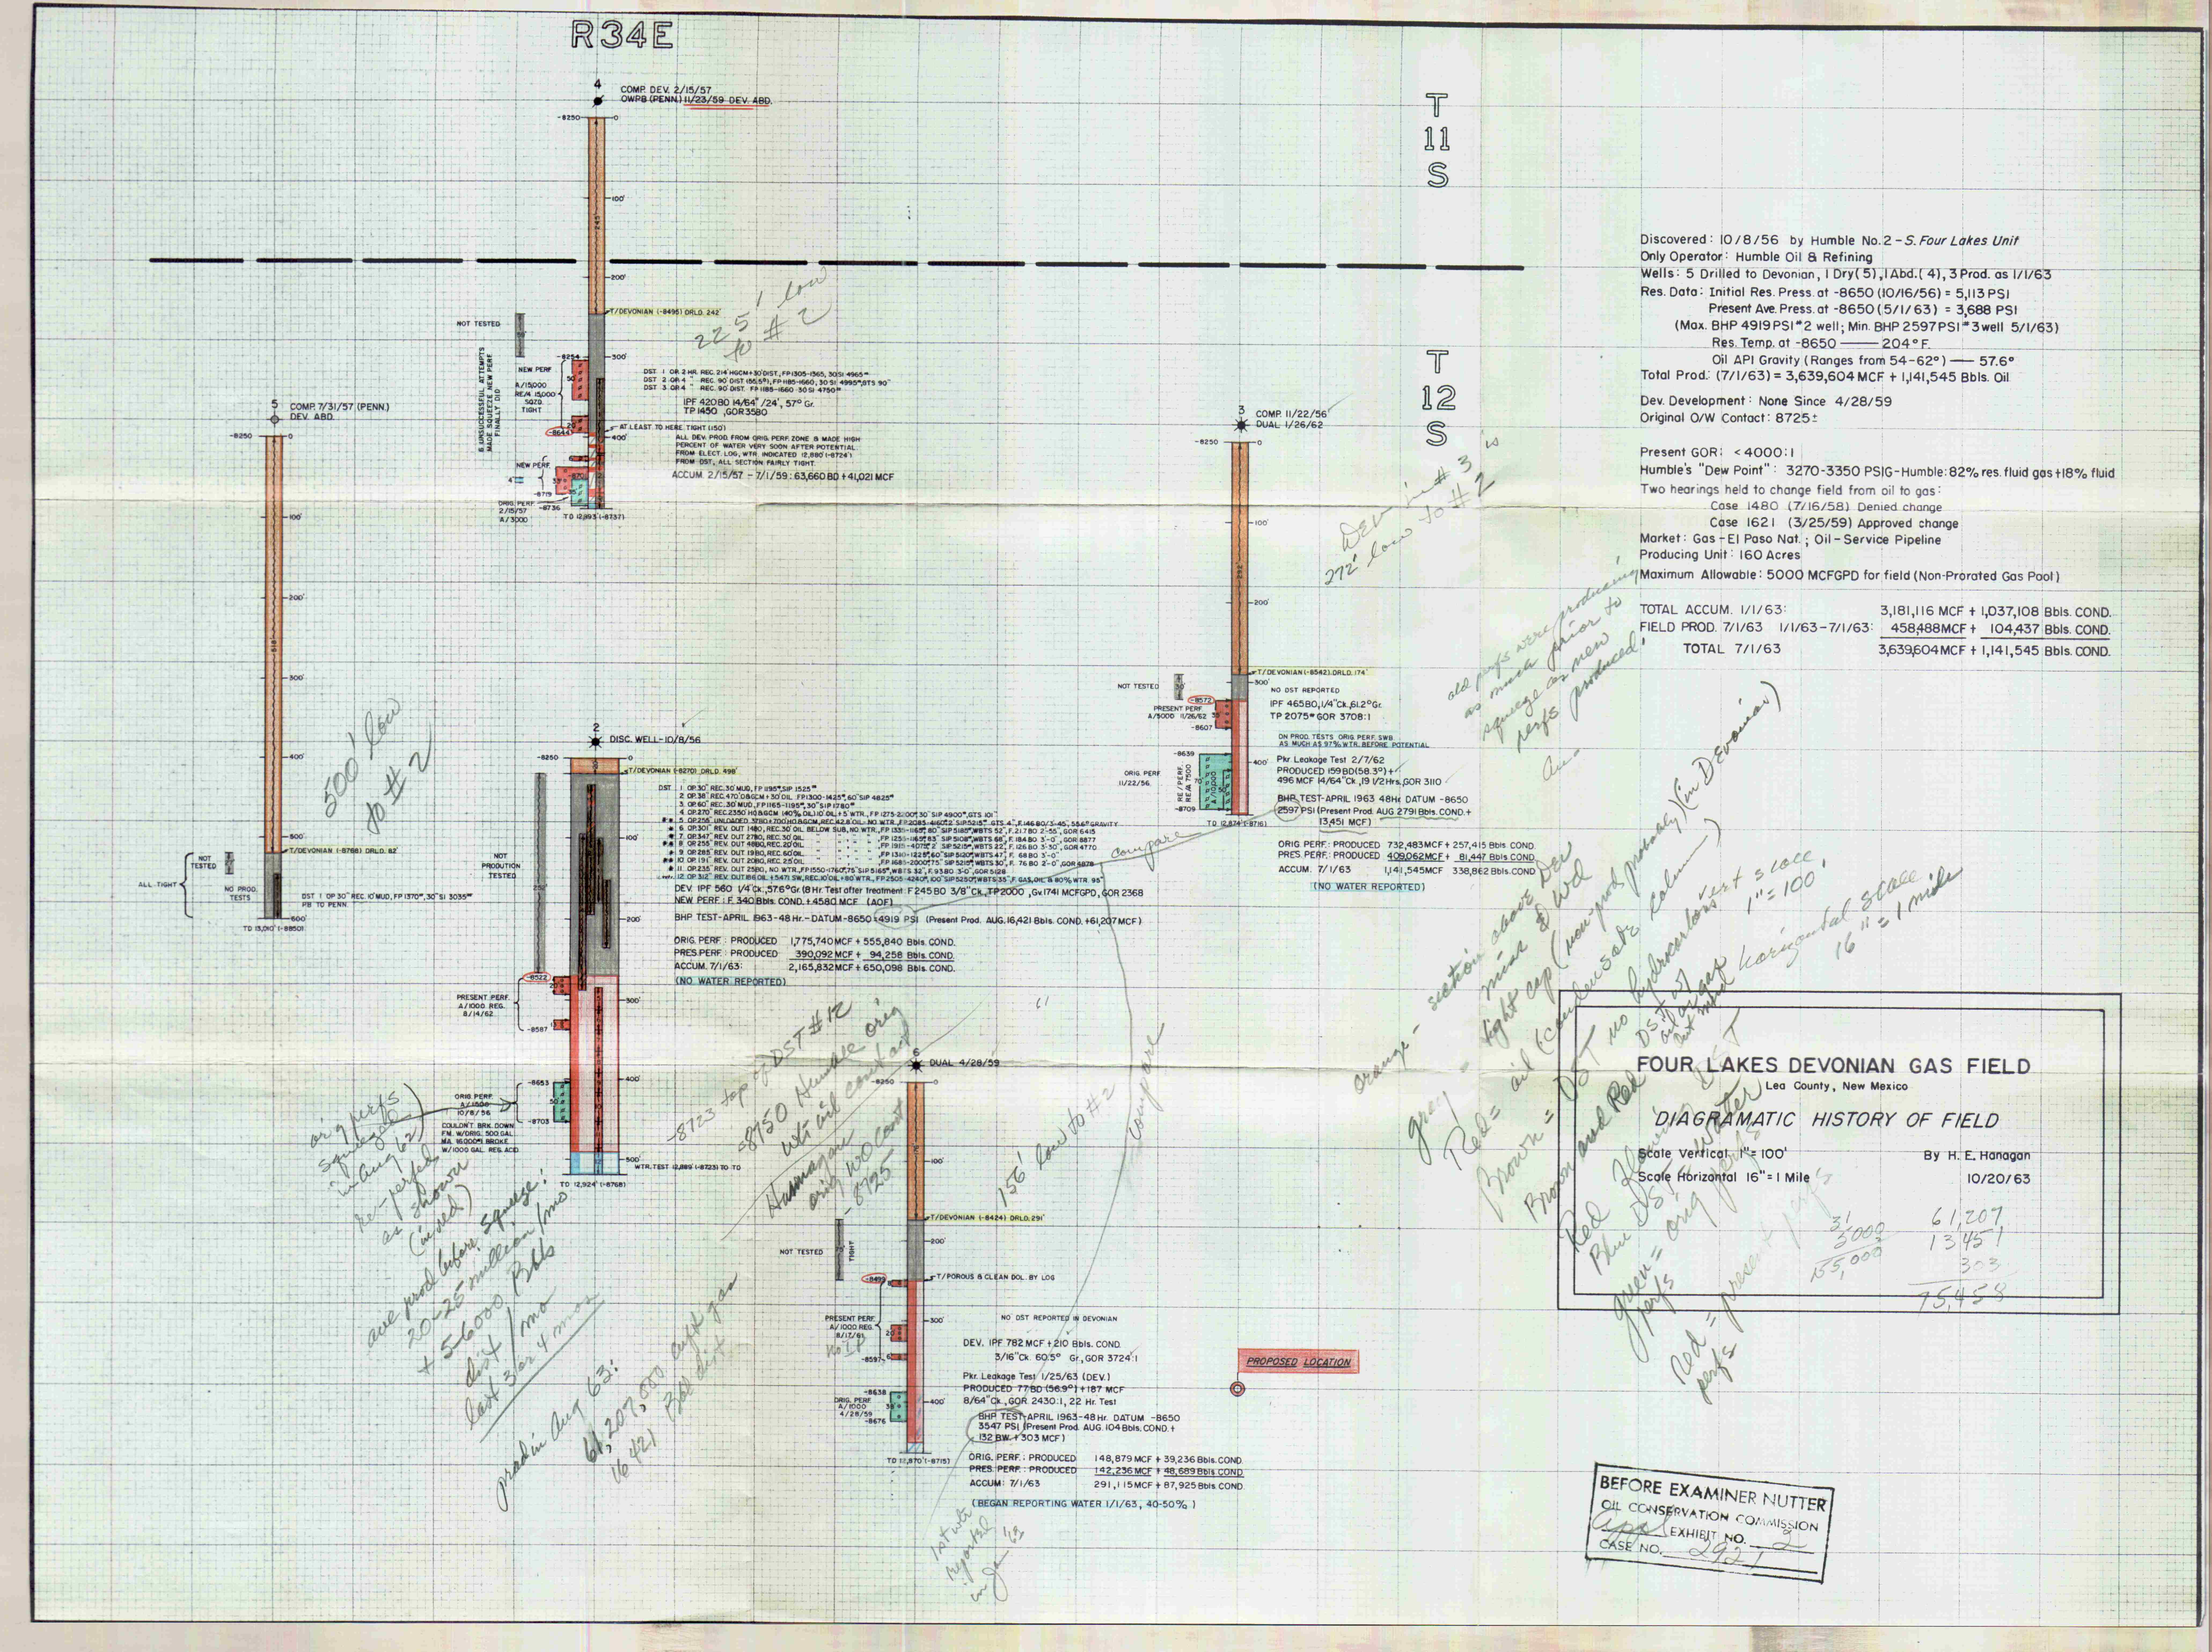 R34E
4
COMP. DEV. 2/15/57
OWPB (PENN.) 11/23/59 DEV. ABD.
-8250
0
100'
200'
T/DEVONIAN (-8495) DRLD. 242'
NOT TESTED
300'
NEW PERF
A/15,000
TIGHT
6 UNSUCCESSFUL ATTEMPTS
MADE SQUEEZE NEW PERF.
FINALLY DID
IPF 420BO 14/64" /24', 57° Gr.
TP 1450, GOR 3580
AT LEAST TO HERE TIGHT (150')
400'
ALL DEV. PROD. FROM ORIG. PERF. ZONE IS MADE HIGH
PERCENT OF WATER VERY SOON AFTER POTENTIAL
FROM ELECT. LOG, WTR. INDICATED 12,880 (-8724')
FROM DST, ALL SECTION FAIRLY TIGHT.
ACCUM. 2/15/57 - 7/1/59: 63,660 BO + 41,021 MCF
NEW PERF.
-8719
ORIG. PERF.
2/15/57
A/3000
-8736
TD 12,893 (-8737)
225' low
to #2
T
11
S
T
12
S
5
COMP. 7/31/57 (PENN.)
DEV. ABD.
-8250
0
100'
200'
300'
400'
500'
T/DEVONIAN (-8768) DRLD. 82'
NOT
TESTED
ALL TIGHT
NO PROD.
TESTS
DST 1 OP 30" REC. 10' MUD, FP 1370#, 30" SI 3035#
PB TO PENN.
600'
TD 13,010' (-8850)
500' low
to #2
2
DISC. WELL-10/8/56
-8250
T/DEVONIAN (-8270) DRLD. 498'
100'
NOT
PRODUTION
TESTED
200'
DEV. IPF 560 1/4"Ck., 57.6° Gr. (8 Hr. Test after treatment: F 245 BO 3/8"Ck., TP 2000, Gv. 1741 MCFGPD, GOR 2368
NEW PERF.: F. 340 Bbls. COND. + 4580 MCF (AOF)
BHP TEST-APRIL 1963-48 Hr.-DATUM-8650 4919 PSI (Present Prod. AUG. 16,421 Bbls. COND. + 61,207 MCF)
ORIG. PERF: PRODUCED 1,775,740 MCF + 555,840 Bbls. COND.
PRES. PERF.: PRODUCED 390,092 MCF + 94,258 Bbls. COND.
ACCUM. 7/1/63: 2,165,832 MCF + 650,098 Bbls. COND.
(NO WATER REPORTED)
-8522
PRESENT PERF.
A/1000 REG.
8/14/62
300'
-8587
400'
-8653
ORIG. PERF.
A/1500
10/8/56
-8703
COULDN'T BRK. DOWN
FM. W/ORIG. 500 GAL.
MA. 16000# BROKE
W/1000 GAL. REG. ACID
500'
WTR. TEST 12,889 (-8723) TO TD
TD 12,924' (-8768)
orig perfs
squeezed
in Aug 62)
re-perfed
as shown
(in red)
ave prod before squeeze:
20-25 million/mo
+ 5-6000 Bbls
dist/mo
last 3 or 4 mos
prod in Aug 63:
61,207,000 cu ft gas
16421 Bbl dist
-8723 top of DST #12
-8750 Humble orig
wtr oil contact
Hannagan
orig W/O Cont
-8725
3
COMP. 11/22/56
DUAL 1/26/62
-8250
0
100'
200'
T/DEVONIAN (-8542) DRLD. 174'
NOT TESTED
300'
NO DST REPORTED
-8572
IPF 465BO, 1/4"Ck., 61.2° Gr.
TP 2075# GOR 3708:1
PRESENT PERF.
A/5000 11/26/62
-8607
ON PROD. TESTS ORIG. PERF. SWB.
AS MUCH AS 97% WTR. BEFORE POTENTIAL
-8639
400'
Pkr. Leakage Test 2/7/62
PRODUCED 159 BD (58.3°) +
496 MCF 14/64"Ck., 19 1/2 Hrs., GOR 3110
ORIG. PERF
11/22/56
RE/PERF.
RE/A 7500
A/10,000
-8709
BHP TEST-APRIL 1963 48Hr. DATUM -8650
2597 PSI (Present Prod. AUG. 2791 Bbls. COND. +
13,451 MCF)
TD 12,874 (-8716)
ORIG PERF: PRODUCED 732,483 MCF + 257,415 Bbls. COND.
PRES. PERF.: PRODUCED 409,062 MCF + 81,447 Bbls. COND.
ACCUM. 7/1/63 1,141,545 MCF 338,862 Bbls. COND
(NO WATER REPORTED)
Dev in #3 is
272' low to #2
old perfs were producing
as much prior to
squeeze as new
perfs produced.
compare
compare
6
DUAL 4/28/59
-8250
0
100'
T/DEVONIAN (-8424) DRLD. 291'
200'
NOT TESTED
TIGHT
T/POROUS & CLEAN DOL. BY LOG
300'
NO DST REPORTED IN DEVONIAN
PRESENT PERF.
A/1000 REG.
8/17/61
No IP
-8597
DEV. IPF 782 MCF + 210 Bbls. COND.
3/16"Ck. 60.5° Gr., GOR 3724:1
Pkr. Leakage Test 1/25/63 (DEV.)
PRODUCED 77 BD (56.9°) + 187 MCF
8/64"Ck., GOR 2430:1, 22 Hr. Test
-8638
ORIG. PERF.
A/1000
4/28/59
-8676
400'
BHP TEST-APRIL 1963-48 Hr. DATUM -8650
3547 PSI (Present Prod. AUG. 104 Bbls. COND. +
132 BW. + 303 MCF)
TD 12,870 (-8715)
ORIG. PERF.: PRODUCED 148,879 MCF + 39,236 Bbls. COND.
PRES. PERF.: PRODUCED 142,236 MCF + 48,689 Bbls. COND
ACCUM: 7/1/63 291,115 MCF + 87,925 Bbls. COND.
(BEGAN REPORTING WATER 1/1/63, 40-50%)
156' low to #2
1st wtr
reported
in Ja '63
PROPOSED LOCATION
Discovered: 10/8/56 by Humble No. 2 - S. Four Lakes Unit
Only Operator: Humble Oil & Refining
Wells: 5 Drilled to Devonian, 1 Dry(5), 1 Abd.(4), 3 Prod. as 1/1/63
Res. Data: Initial Res. Press. at -8650 (10/16/56) = 5,113 PSI
Present Ave. Press. at -8650 (5/1/63) = 3,688 PSI
(Max. BHP 4919 PSI #2 well; Min. BHP 2597 PSI #3 well 5/1/63)
Res. Temp. at -8650 — 204° F.
Oil API Gravity (Ranges from 54-62°) — 57.6°
Total Prod.: (7/1/63) = 3,639,604 MCF + 1,141,545 Bbls. Oil
Dev. Development: None Since 4/28/59
Original O/W Contact: 8725±
Present GOR: <4000:1
Humble's "Dew Point": 3270-3350 PSIG-Humble: 82% res. fluid gas + 18% fluid
Two hearings held to change field from oil to gas:
Case 1480 (7/16/58) Denied change
Case 1621 (3/25/59) Approved change
Market: Gas - El Paso Nat.; Oil - Service Pipeline
Producing Unit: 160 Acres
Maximum Allowable: 5000 MCFGPD for field (Non-Prorated Gas Pool)
TOTAL ACCUM. 1/1/63: 3,181,116 MCF + 1,037,108 Bbls. COND.
FIELD PROD. 7/1/63 1/1/63-7/1/63: 458,488 MCF + 104,437 Bbls. COND.
TOTAL 7/1/63 3,639,604 MCF + 1,141,545 Bbls. COND.
orange - section above Dev
gray = tight cap (non-prod probably) (in Devonian)
Red = oil (condensate column)
Brown = DST no hydrocarbons
Brown and Red
Red = Flowing DST
Blue DST = Water
green = orig perfs
Red = present perfs
vert scale
1" = 100'
horizontal scale
16" = 1 mile
FOUR LAKES DEVONIAN GAS FIELD
Lea County, New Mexico
DIAGRAMATIC HISTORY OF FIELD
Scale Vertical 1" = 100'
By H. E. Hanagan
Scale Horizontal 16" = 1 Mile
10/20/63
31
5000
155,000
61,207
13,451
303
75,458
BEFORE EXAMINER NUTTER
OIL CONSERVATION COMMISSION
appl EXHIBIT NO. 2
CASE NO. 2921